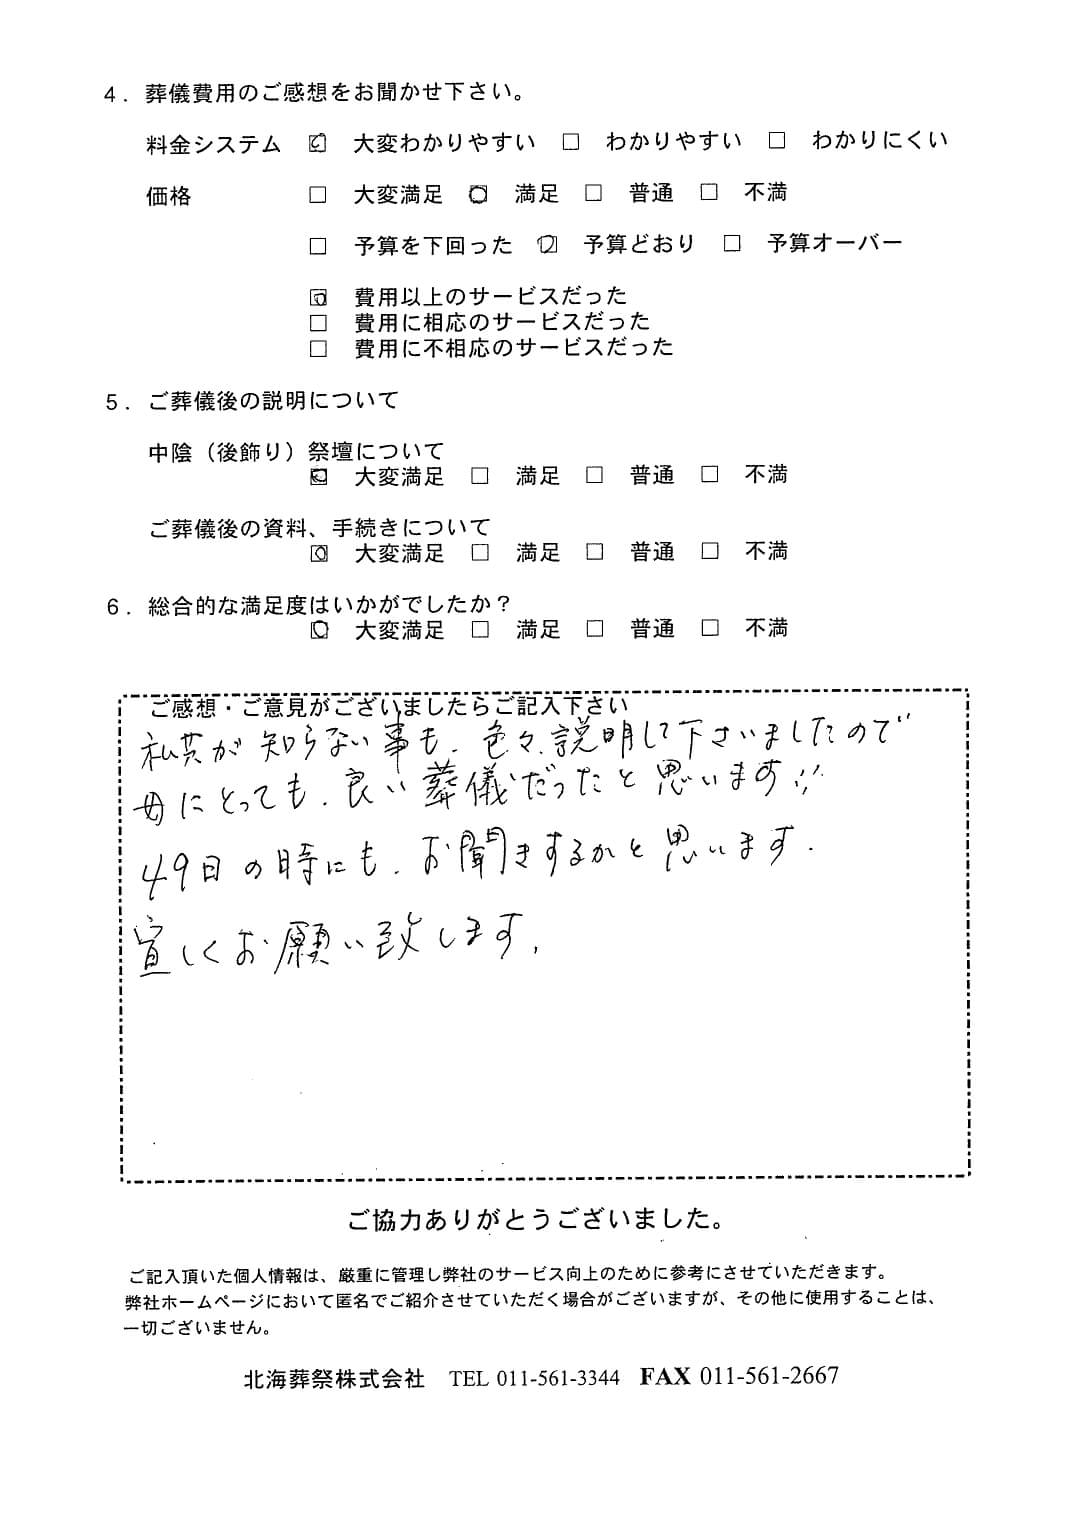 ４．葬儀費用のご感想をお聞かせ下さい。
料金システム ☑ 大変わかりやすい □ わかりやすい □ わかりにくい
価格 □ 大変満足 ☑ 満足 □ 普通 □ 不満
□ 予算を下回った ☑ 予算どおり □ 予算オーバー
☑ 費用以上のサービスだった
□ 費用に相応のサービスだった
□ 費用に不相応のサービスだった
５．ご葬儀後の説明について
中陰（後飾り）祭壇について
☑ 大変満足 □ 満足 □ 普通 □ 不満
ご葬儀後の資料、手続きについて
☑ 大変満足 □ 満足 □ 普通 □ 不満
６．総合的な満足度はいかがでしたか？
☑ 大変満足 □ 満足 □ 普通 □ 不満
ご感想・ご意見がございましたらご記入下さい
私共が知らない事も、色々、説明して下さいましたので
母にとっても、良い葬儀だったと思います!!
49日の時にも、お聞きするかと思います.
宜しくお願い致します,
ご協力ありがとうございました。
ご記入頂いた個人情報は、厳重に管理し弊社のサービス向上のために参考にさせていただきます。
弊社ホームページにおいて匿名でご紹介させていただく場合がございますが、その他に使用することは、
一切ございません。
北海葬祭株式会社 TEL 011-561-3344 FAX 011-561-2667